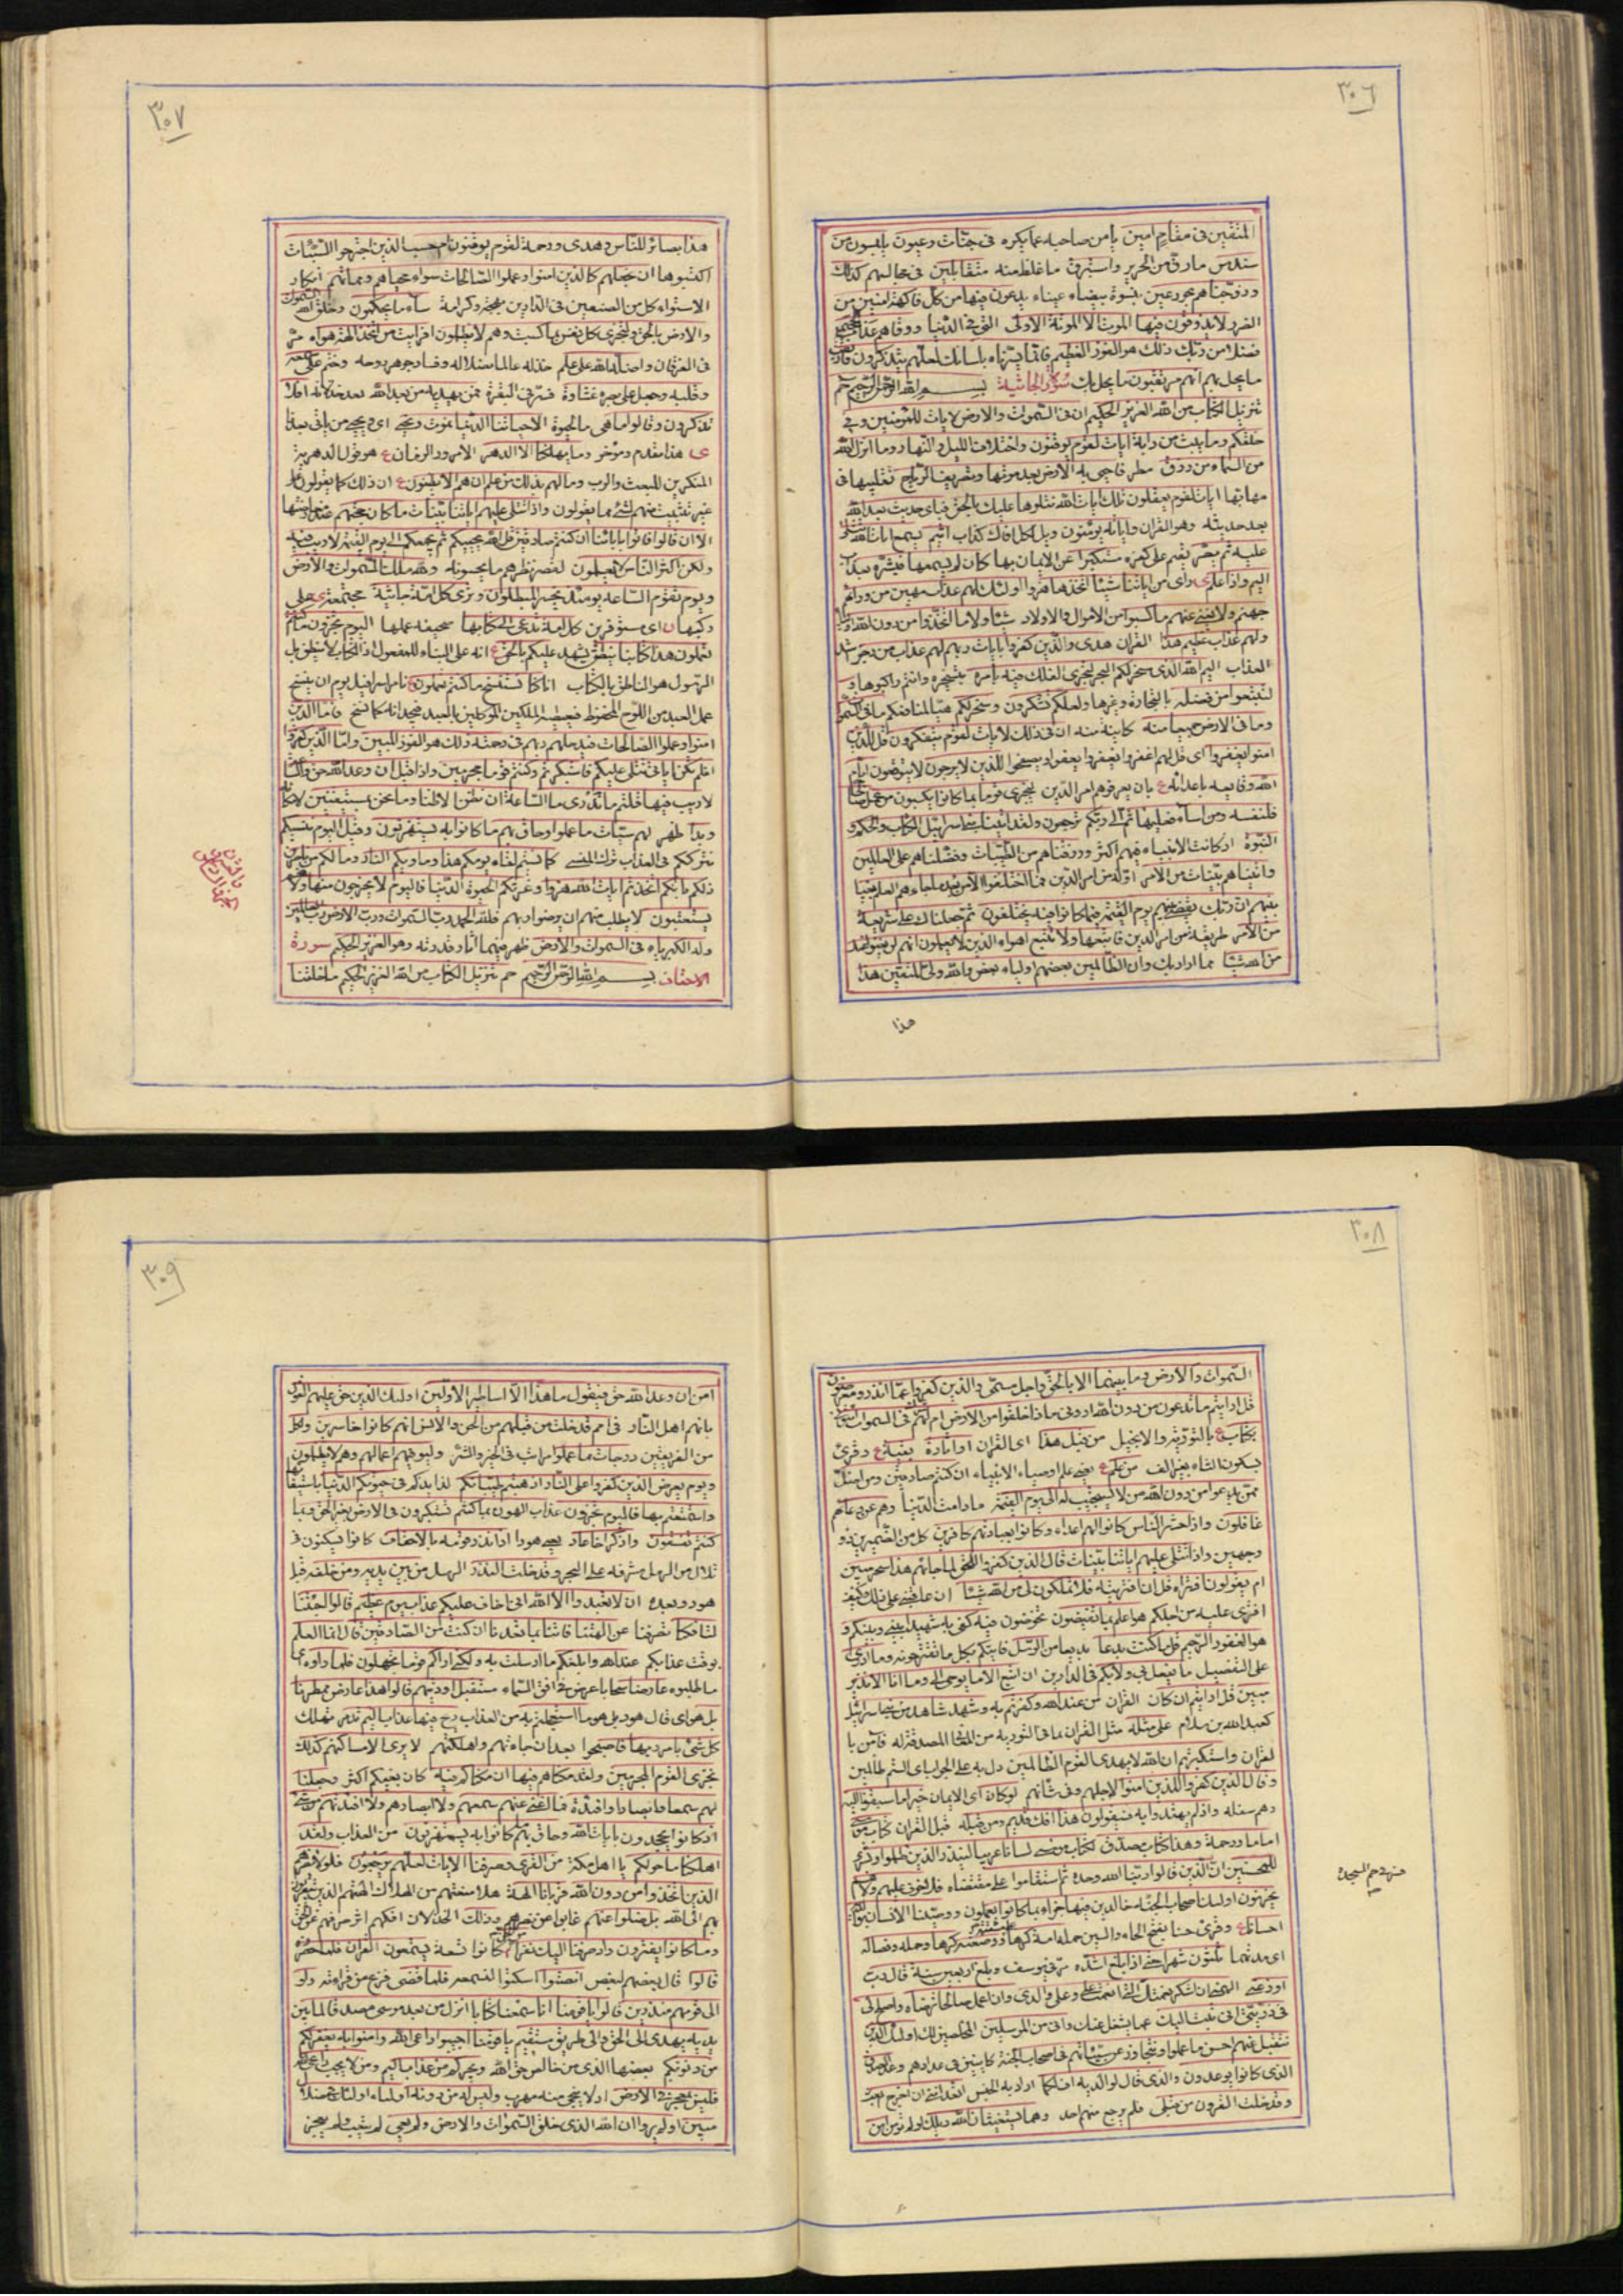 ٣٠٦
المتقين فى مقام امين يامن صاحبه عما يكره فى جنات وعيون يلبسون من
سندس مارق من الحرير واستبرق ما غلظ منه متقابلين فى مجالسهم كذلك
وزوجناهم بحور عين بنسوة بيضاء عيناء يدعون فيها من كل فاكهة امنين من
الضرر لا يذوقون فيها الموت الا الموتة الاولى التى فى الدنيا ووقاهم عذاب الجحيم
فضلا من ربك ذلك هو الفوز العظيم فانما يسرناه بلسانك لعلهم يتذكرون فارتقب
ما يحل بهم انهم مرتقبون ما يحل بك سورة الجاثية بسم الله الرحمن الرحيم حم
تنزيل الكتاب من الله العزيز الحكيم ان فى السموات والارض لايات للمؤمنين وفى
خلقكم وما يبث من دابة ايات لقوم يوقنون واختلاف الليل والنهار وما انزل الله
من السماء من رزق مطر فاحيى به الارض بعد موتها وتصريف الرياح تقليبها فى
مهابها ايات لقوم يعقلون تلك ايات الله نتلوها عليك بالحق فباى حديث بعد الله
بعد حديثه وهو القران واياته يؤمنون ويل لكل افاك كذاب اثيم يسمع ايات الله تتلى
عليه ثم يصر يقيم على كفره مستكبرا عن الايمان بها كان لم يسمعها فبشره بعذاب
اليم واذا علم ى راى من اياتنا شيئا اتخذها هزوا اولئك لهم عذاب مهين من ورائهم
جهنم ولا يغنى عنهم ما كسبوا من الاموال والاولاد شيئا ولا ما اتخذوا من دون الله اولياء
ولهم عذاب عظيم هذا القران هدى والذين كفروا بايات ربهم لهم عذاب من رجز اشد
العذاب اليم الله الذى سخر لكم البحر لتجرى الفلك فيه بامره بتسخيره وانتم راكبوها و
لتبتغوا من فضله بالتجارة وغيرها ولعلكم تشكرون وسخر لكم هيا لمنافعكم ما فى السموات
وما فى الارض جميعا منه كائنة منه ان فى ذلك لايات لقوم يتفكرون قل للذين
امنوا يغفروا اى قل لهم اغفروا يغفروا يعفوا ويصفحوا للذين لا يرجون لا يتوقعون ايام
الله وقايعه باعدائه ع بان يعرفوهم امر الدين ليجزى قوما بما كانوا يكسبون من عمل صالحا
فلنفسه ومن اساء فعليها ثم الى ربكم ترجعون ولقد اتينا بنى اسرائيل الكتاب والحكم و
النبوة اذ كانت الانبياء فيهم اكثر ورزقناهم من الطيبات وفضلناهم على العالمين
واتيناهم بينات من الامر ادلة من امر الدين فما اختلفوا الا من بعد ما جاءهم العلم بغيا
بينهم ان ربك يقضى بينهم يوم القيمة فيما كانوا فيه يختلفون ثم جعلناك على شريعة
من الامر طريقة من امر الدين فاتبعها ولا تتبع اهواء الذين لا يعلمون انهم لن يغنوا عنك
من الله شيئا مما اراد بك وان الظالمين بعضهم اولياء بعض والله ولى المتقين هذا
هذا
٣٠٧
هذا بصائر للناس وهدى ورحمة لقوم يوقنون ام حسب الذين اجترحوا السيئات
اكتسبوها ان نجعلهم كالذين امنوا وعملوا الصالحات سواء محياهم ومماتهم انكار
الاستواء كل من الصنفين فى الدارين بهجة وكرامة ساء ما يحكمون وخلق الله السموات
والارض بالحق ولتجزى كل نفس بما كسبت وهم لا يظلمون افرايت من اتخذ الهه هواه مر
فى الفرقان واضله الله على علم خذله عالما بضلاله وفساد جوهر روحه وختم على سمعه
وقلبه وجعل على بصره غشاوة فسر فى البقرة فمن يهديه من بعد الله بعد خذلانه افلا
تذكرون وقالوا ما هى ما الحيوة الا حياتنا الدنيا نموت ونحيى اى ويحيى من ياتى بعدنا
ى هذا مقدم ومؤخر وما يهلكنا الا الدهر الا مرور الزمان ع هو قول الدهرية
المنكرين للبعث والرب وما لهم بذلك من علم ان هم الا يظنون ع ان ذلك كما يقولون على
غير تثبت منهم لشئ مما يقولون واذا تتلى عليهم اياتنا بينات ما كان حجتهم
الا ان قالوا ائتوا بابائنا ان كنتم صادقين قل الله يحييكم ثم يجمعكم الى يوم القيمة لا ريب فيه
ولكن اكثر الناس لا يعلمون لقصر نظرهم ما يحسونه ولله ملك السموات والارض
ويوم تقوم الساعة يومئذ يخسر المبطلون وترى كل امة جاثية مجتمعة ى على
ركبها ن اى مستوفزين كل امة تدعى الى كتابها صحيفة عملها اليوم تجزون ما كنتم
تعملون هذا كتابنا ينطق يشهد عليكم بالحق ع انه على البناء للمفعول اذ الكتاب لا ينطق بل
الرسول هو الناطق بالكتاب انا كنا نستنسخ ما كنتم تعملون نامر اسرافيل يوم ان ينسخ
عمل العبد من اللوح المحفوظ فيعطيه الملكين الموكلين بالعبد فيجدانه كما نسخ فاما الذين
امنوا وعملوا الصالحات فيدخلهم ربهم فى رحمته ذلك هو الفوز المبين واما الذين كفروا
افلم تكن اياتى تتلى عليكم فاستكبرتم وكنتم قوما مجرمين واذا قيل ان وعد الله حق والساعة
لا ريب فيها قلتم ما ندرى ما الساعة ان نظن الا ظنا وما نحن بمستيقنين لامكانه
وبدا ظهر لهم سيئات ما عملوا وحاق بهم ما كانوا به يستهزئون وقيل اليوم ننسيكم
نترككم فى العذاب ترك المنسى كما نسيتم لقاء يومكم هذا وماويكم النار وما لكم من ناصرين
ذلكم بانكم اتخذتم ايات الله هزوا وغرتكم الحيوة الدنيا فاليوم لا يخرجون منها ولا هم
يستعتبون لا يطلب منهم ان يرضوا ربهم فلله الحمد رب السموات ورب الارض رب العالمين
وله الكبرياء فى السموات والارض ظهر فيهما اثار قدرته وهو العزيز الحكيم سورة
الاحقاف بسم الله الرحمن الرحيم حم تنزيل الكتاب من الله العزيز الحكيم ما خلقنا
٣٠٨
السموات والارض وما بينهما الا بالحق واجل مسمى والذين كفروا عما انذروا معرضون
قل ارايتم ما تدعون من دون الله ارونى ماذا خلقوا من الارض ام لهم شرك فى السموات ائتونى
بكتاب ع بالتورية والانجيل من قبل هذا اى القران او اثارة بقية ع وقرئ
بسكون الثاء بغير الف من علم ع يعنى علم اوصياء الانبياء ان كنتم صادقين ومن اضل
ممن يدعوا من دون الله من لا يستجيب له الى يوم القيمة ما دامت الدنيا وهم عن دعائهم
غافلون واذا حشر الناس كانوا لهم اعداء وكانوا بعبادتهم كافرين كل من الضميرين ذو
وجهين واذا تتلى عليهم اياتنا بينات قال الذين كفروا للحق لما جاءهم هذا سحر مبين
ام يقولون افتراه قل ان افتريته فلا تملكون لى من الله شيئا ان عاقبنى على ذلك فكيف
افترى عليه من اجلكم هو اعلم بما تفيضون تخوضون فيه كفى به شهيدا بينى وبينكم و
هو الغفور الرحيم قل ما كنت بدعا بديعا من الرسل فاتيكم بكل ما تقترحونه وما ادرى
على التفصيل ما يفعل بى ولا بكم فى الدارين ان اتبع الا ما يوحى الى وما انا الا نذير
مبين قل ارايتم ان كان القران من عند الله وكفرتم به وشهد شاهد من بنى اسرائيل
كعبد الله بن سلام على مثله مثل القران مما فى التورية من المعانى المصدقة له فامن با
لقران واستكبرتم ان الله لا يهدى القوم الظالمين دل به على الجواب اى الستم ظالمين
وقال الذين كفروا للذين امنوا لاجلهم وفى شانهم لو كان اى الايمان خيرا ما سبقونا اليه
وهم سفلة واذ لم يهتدوا به فسيقولون هذا افك قديم ومن قبله قبل القران كتاب موسى
اماما ورحمة وهذا كتاب مصدق لكتاب موسى لسانا عربيا لينذر الذين ظلموا وبشرى
للمحسنين ان الذين قالوا ربنا الله وحده ثم استقاموا على مقتضاه فلا خوف عليهم ولا هم
يحزنون اولئك اصحاب الجنة خالدين فيها جزاء بما كانوا يعملون ووصينا الانسان بوالديه
احسانا ع وقرئ حسنا بفتح الحاء والسين حملته امه كرها ووضعته كرها وحمله وفصاله
اى مدتهما ثلثون شهرا حتى اذا بلغ اشده مر فى يوسف وبلغ اربعين سنة قال رب
اوزعنى الهمنى ان اشكر نعمتك التى انعمت على وعلى والدى وان اعمل صالحا ترضاه واصلح لى
فى ذريتى انى تبت اليك عما يشغل عنك وانى من المسلمين المخلصين لك اولئك الذين
نتقبل عنهم احسن ما عملوا ونتجاوز عن سيئاتهم فى اصحاب الجنة كائنين فى عدادهم وعد الصدق
الذى كانوا يوعدون والذى قال لوالديه اف لكما اراد به الجنس اتعداننى ان اخرج ابعث
وقد خلت القرون من قبلى فلم يرجع منهم احد وهما يستغيثان الله ويلك له امن
حم السجدة
٣٠٩
امن ان وعد الله حق فيقول ما هذا الا اساطير الاولين اولئك الذين حق عليهم القول
بانهم اهل النار فى امم قد خلت من قبلهم من الجن والانس انهم كانوا خاسرين ولكل
من الفريقين درجات مما عملوا مراتب فى الخير والشر وليوفيهم اعمالهم وهم لا يظلمون
ويوم يعرض الذين كفروا على النار اذهبتم طيباتكم لذايذكم فى حيوتكم الدنيا باستيفائها
واستمتعتم بها فاليوم تجزون عذاب الهون بما كنتم تستكبرون فى الارض بغير الحق وبما
كنتم تفسقون واذكر اخا عاد يعنى هودا اذ انذر قومه بالاحقاف كانوا يسكنون فى
تلال من الرمل مشرفة على البحر وقد خلت النذر الرسل من بين يديه ومن خلفه قبل
هود وبعده ان لا تعبدوا الا الله انى اخاف عليكم عذاب يوم عظيم قالوا اجئتنا
لتافكنا تصرفنا عن الهتنا فاتنا بما تعدنا ان كنت من الصادقين قال انما العلم
بوقت عذابكم عند الله وابلغكم ما ارسلت به ولكنى اراكم قوما تجهلون فلما راوه اى
ما طلبوه عارضا سحابا عرض فى افق السماء مستقبل اوديتهم قالوا هذا عارض ممطرنا
بل هو اى قال هود بل هو ما استعجلتم به من العذاب ريح فيها عذاب اليم تدمر تهلك
كل شئ بامر ربها فاصبحوا بعد ان جاءتهم واهلكتهم لا يرى الا مساكنهم كذلك
نجزى القوم المجرمين ولقد مكناهم فيها ان مكناكم فيه كان بغيكم اكثر وجعلنا
لهم سمعا وابصارا وافئدة فما اغنى عنهم سمعهم ولا ابصارهم ولا افئدتهم من شئ
اذ كانوا يجحدون بايات الله وحاق بهم ما كانوا به يستهزئون من العذاب ولقد
اهلكنا ما حولكم يا اهل مكة من القرى وصرفنا الايات لعلهم يرجعون فلولا نصرهم
الذين اتخذوا من دون الله قربانا الهة هلا منعتهم من الهلاك الهتهم الذين
بهم الى الله بل ضلوا عنهم غابوا عن نصرهم وذلك الخذلان افكهم اثر صرفهم عن الحق
وما كانوا يفترون واذ صرفنا اليك نفرا من الجن كانوا تسعة يستمعون القران فلما حضروه
قالوا قال بعضهم لبعض انصتوا اسكتوا لنسمعه فلما قضى فرغ من قراءته ولوا
الى قومهم منذرين قالوا يا قومنا انا سمعنا كتابا انزل من بعد موسى مصدقا لما بين
يديه يهدى الى الحق والى طريق مستقيم يا قومنا اجيبوا داعى الله وامنوا به يغفر لكم
من ذنوبكم بعضها الذى من خالص حق الله ويجركم من عذاب اليم ومن لا يجب داعى الله
فليس بمعجز فى الارض اذ لا ينجى منه مهرب وليس له من دونه اولياء اولئك فى ضلال
مبين اولم يروا ان الله الذى خلق السموات والارض ولم يعى لم يتعب ولم يعجز